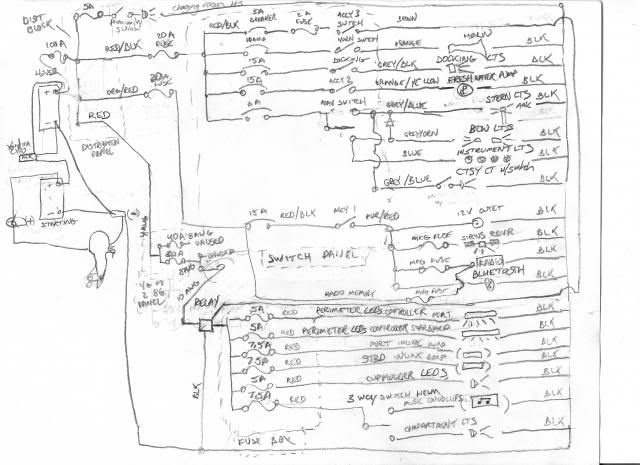 DIST BLOCK
5A
SWITCH
CHARGING ROOM LTS
100A
RED/BLK
20A FUSE
RED/BLK
5A BREAKER
2A FUSE
ACCY 3 SWITCH
BROWN
10AMP
HORN SWITCH
ORANGE
HORN
BLK
15A
DOCKING
GREY/BLK
DOCKING LTS
BLK
HOUSE
20A FUSE
ORG/RED
15A
ACCY 2
ORANGE/YELLOW
FRESHWATER PUMP
P
BLK
RED
6A
NAV SWITCH
GREY/BLUE
STERN LTS
ANC
BLK
DISTRIBUTION PANEL
GREY/ORN
BOW LTS
BLK
BLUE
INSTRUMENT LTS
BLK
GREY/BLUE
CTSY LT W/SWITCH
BLK
STARTING
4 AWG
15A
RED/BLK
ACCY 1
PUR/RED
12V OUTLET
BLK
40A 8AWG UNUSED
80A
UNUSED
8AWG
10 AWG
SWITCH PANEL
MFG FUSE
SIRIUS RCVR
BLK
MFG FUSE
RADIO
BLK
BLUETOOTH
BLK
RADIO MEMORY
MFG FUSE
PANEL
RELAY
BLK
5A
RED
PERIMETER LEDS CONTROLLER PORT
BLK
5A
RED
PERIMETER LEDS CONTROLLER STARBOARD
BLK
7.5A
RED
PORT INLINE AMP
BLK
7.5A
RED
STBD INLINE AMP
BLK
5A
RED
CUPHOLDER LEDS
BLK
7.5A
RED
3 WAY SWITCH HELM
MUSIC CONTROLLERS
BLK
COMPARTMENT LTS
BLK
FUSE BOX